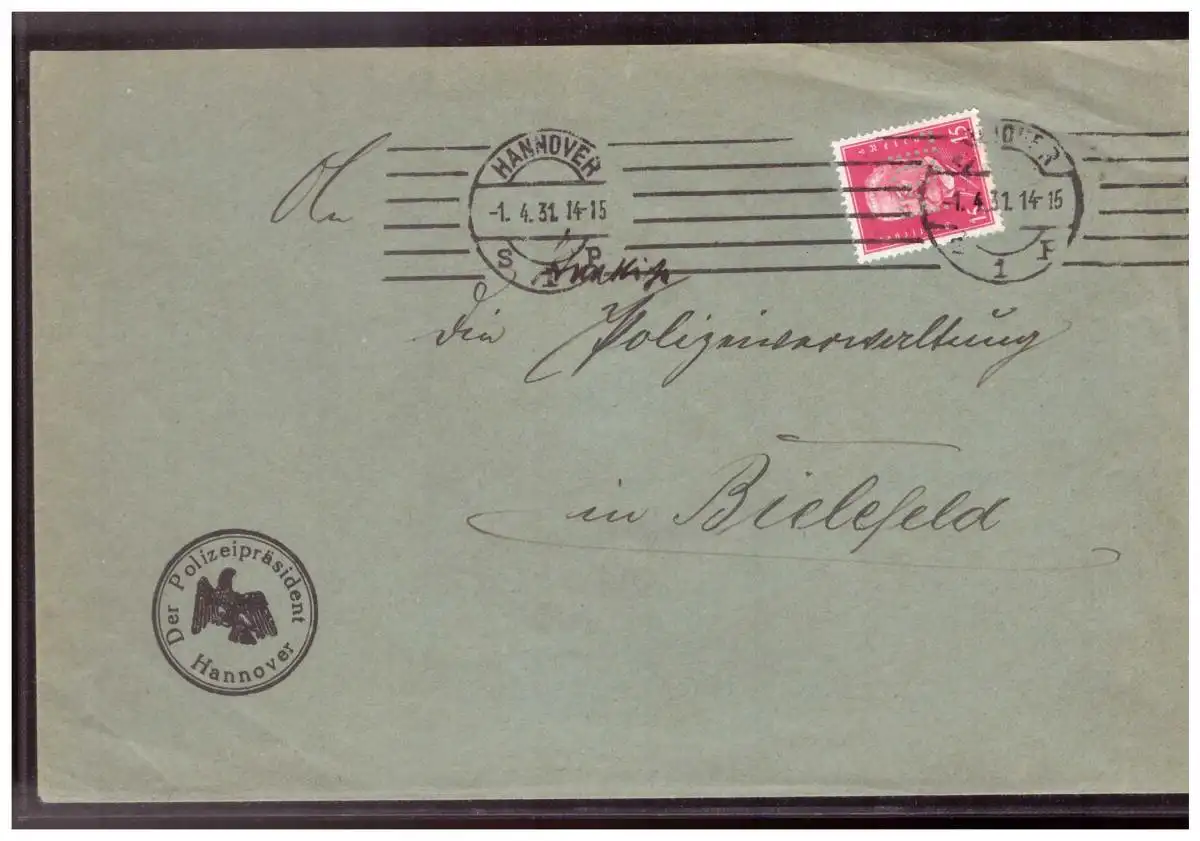 HANNOVER
-1. 4. 31. 14-15
S 1 P
15
NNOVER
-1. 4. 31. 14-15
1 P
An
die Polizeiverwaltung
in Bielefeld
Der Polizeipräsident
Hannover